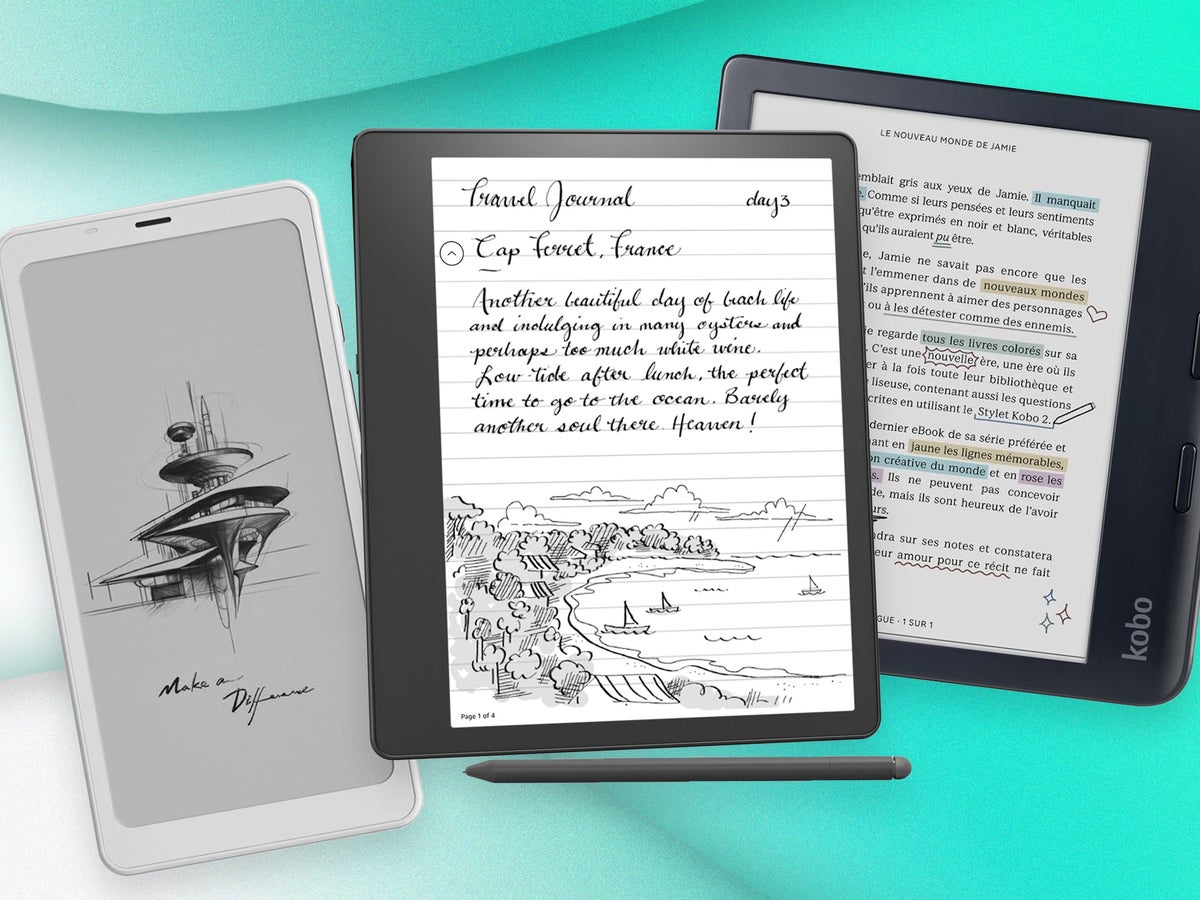 Make a
Difference
Travel Journal day 3
Cap Ferret, France
Another beautiful day of beach life
and indulging in many oysters and
perhaps too much white wine.
Low tide after lunch, the perfect
time to go to the ocean. Barely
another soul there. Heaven!
Page 1 of 4
LE NOUVEAU MONDE DE JAMIE
emblait gris aux yeux de Jamie. Il manquait
e. Comme si leurs pensées et leurs sentiments
qu'être exprimés en noir et blanc, véritables
qu'ils auraient pu être.
e, Jamie ne savait pas encore que les
t l'emmener dans de nouveaux mondes
'ils apprennent à aimer des personnages
ou à les détester comme des ennemis.
ie regarde tous les livres colorés sur sa
. C'est une nouvelle ère, une ère où ils
er à la fois toute leur bibliothèque et
liseuse, contenant aussi les questions
crites en utilisant le Stylet Kobo 2.
dernier eBook de sa série préférée et
uant en jaune les lignes mémorables,
on créative du monde et en rose les
s. Ils ne peuvent pas concevoir
de, mais ils sont heureux de l'avoir
urs.
ndra sur ses notes et constatera
eur amour pour ce récit ne fait
GUE · 1 SUR 1
kobo